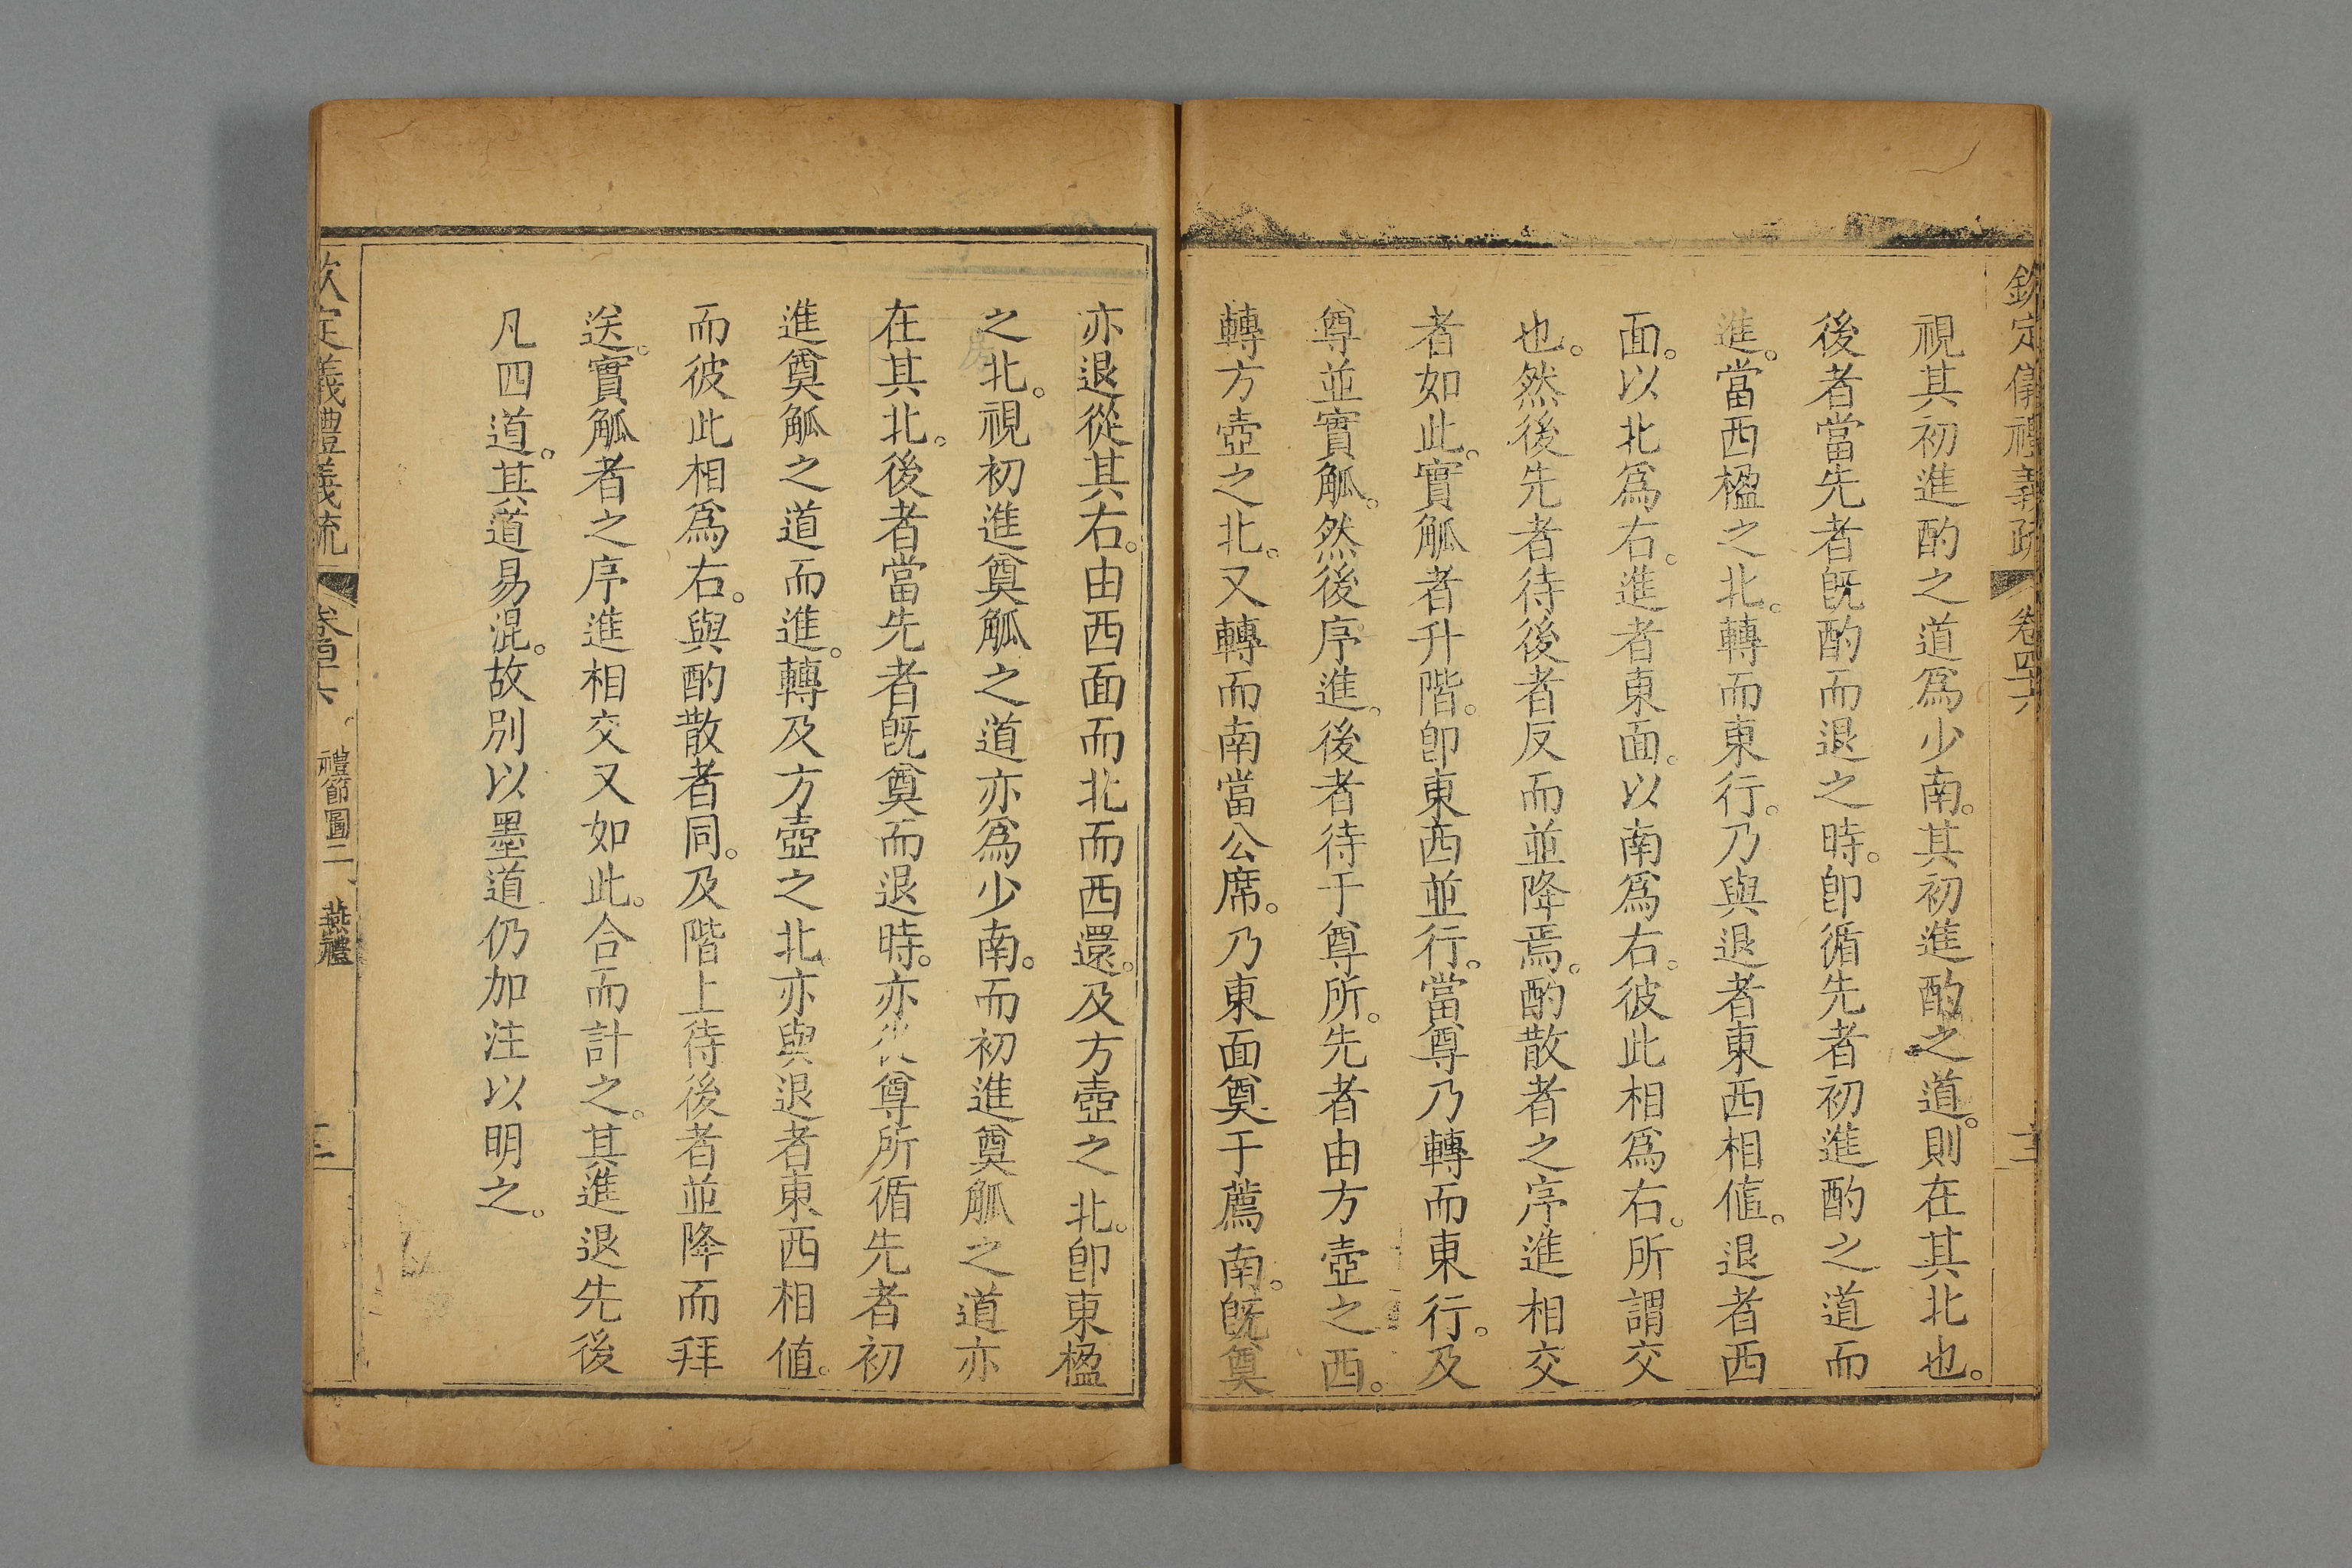 欽定儀禮義疏 卷四十六
視其初進酌之道爲少南。其初進酌之道。則在其北也。
後者當先者既酌而退之時。卽循先者初進酌之道而
進。當西楹之北。轉而東行。乃與退者東西相値。退者西
面。以北爲右。進者東面。以南爲右。彼此相爲右。所謂交
也。然後先者待後者反而並降焉。酌散者之序進相交
者如此。實觚者升階。卽東西並行。當尊乃轉而東行。及
尊並實觚。然後序進。後者待于尊所。先者由方壺之西。
轉方壺之北。又轉而南當公席。乃東面奠于薦南。既奠
亦退從其右。由西面而北而西還。及方壺之北。卽東楹
之北。視初進奠觚之道亦爲少南。而初進奠觚之道亦
在其北。後者當先者既奠而退時。亦尊所循先者初
進奠觚之道而進。轉及方壺之北亦與退者東西相値。
而彼此相爲右。與酌散者同。及階上待後者並降而拜
送。實觚者之序進相交又如此。合而計之。其進退先後
凡四道。其道易混。故別以墨道仍加注以明之。
欽定義禮義疏 卷四十六 禮節圖二、燕禮